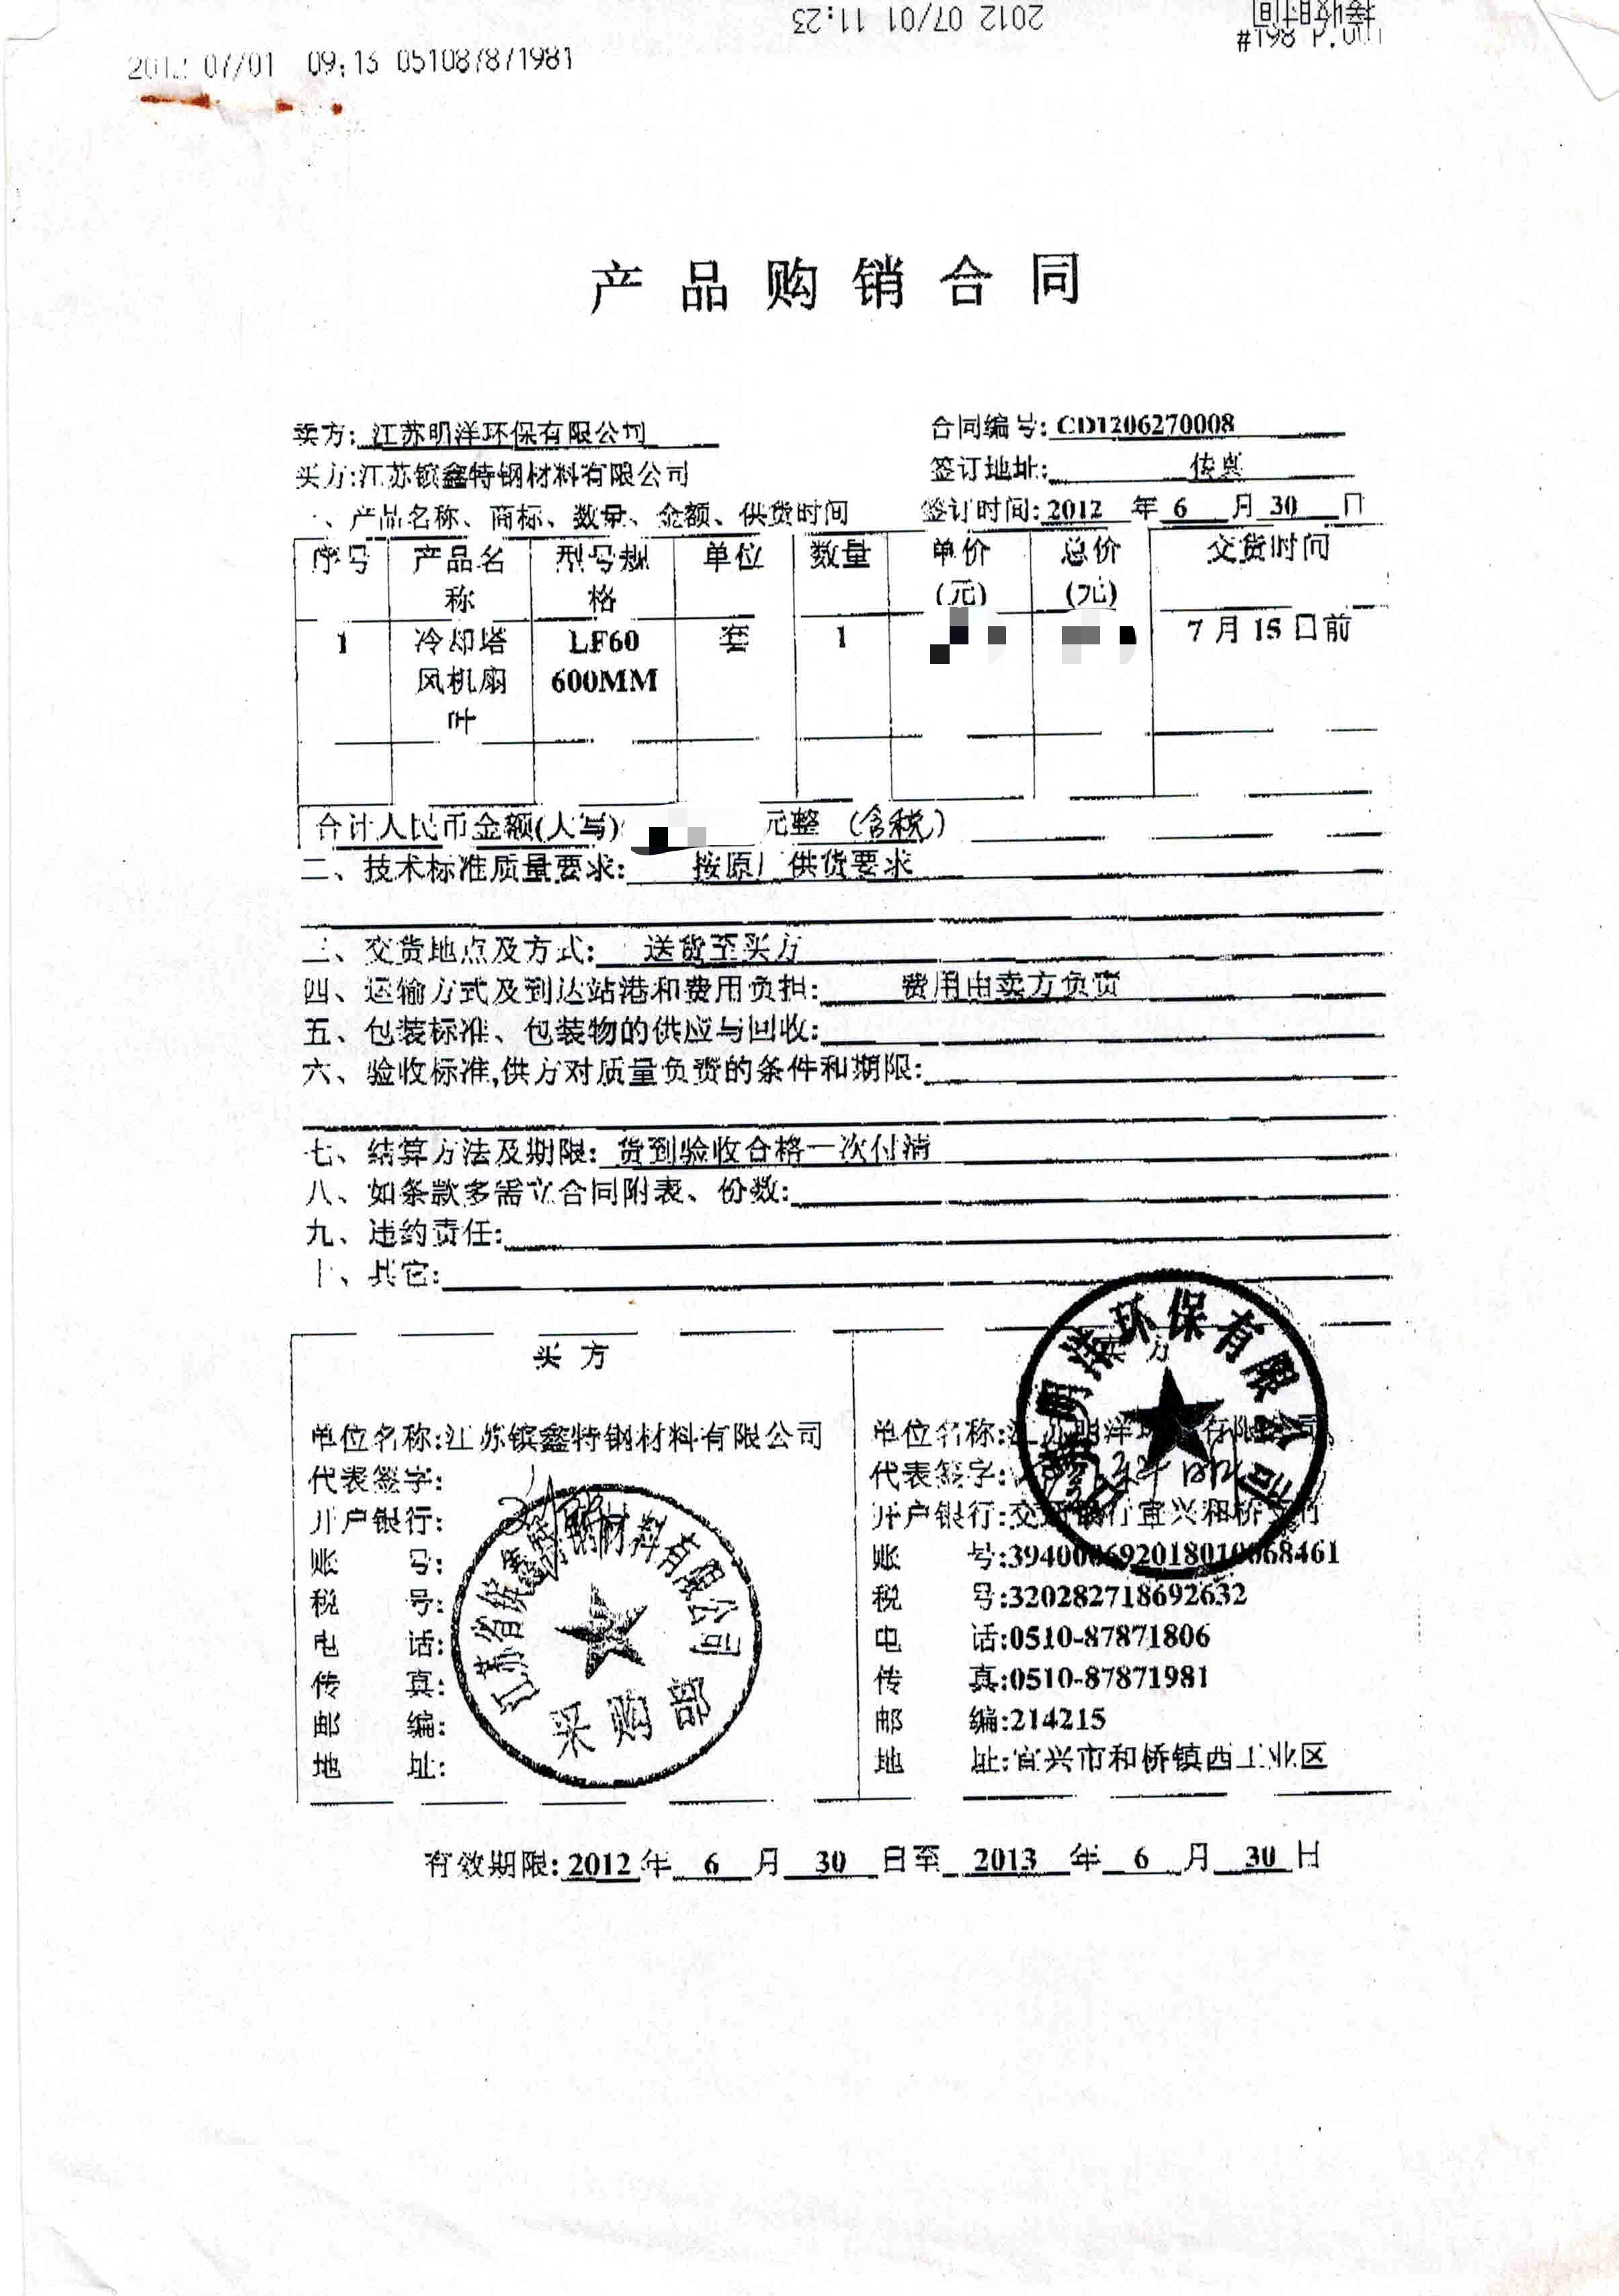 2012 07/01 11:23
接收时间
#198 P.001
2012 07/01 09:13 051087871981
产品购销合同
卖方:江苏明洋环保有限公司
合同编号:CD1206270008
买方:江苏镔鑫特钢材料有限公司
签订地址:传真
一、产品名称、商标、数量、金额、供货时间
签订时间:2012年6月30日
序号 产品名称 型号规格 单位 数量 单价(元) 总价(元) 交货时间
1 冷却塔风机扇叶 LF60 600MM 套 1 7月15日前
合计人民币金额(大写) 元整(含税)
二、技术标准质量要求:按原厂供货要求
三、交货地点及方式:送货至买方
四、运输方式及到达站港和费用负担:费用由卖方负责
五、包装标准、包装物的供应与回收:
六、验收标准,供方对质量负责的条件和期限:
七、结算方法及期限:货到验收合格一次付清
八、如条款多需立合同附表、份数:
九、违约责任:
十、其它:
买方
单位名称:江苏镔鑫特钢材料有限公司
代表签字:
开户银行:
账号:
税号:
电话:
传真:
邮编:
地址:
江苏省镔鑫特钢材料有限公司
采购部
卖方
单位名称:江苏明洋环保有限公司
代表签字:
开户银行:交通银行宜兴和桥支行
账号:394000692018010068461
税号:320282718692632
电话:0510-87871806
传真:0510-87871981
邮编:214215
地址:宜兴市和桥镇西工业区
江苏明洋环保有限公司
有效期限:2012年6月30日至2013年6月30日